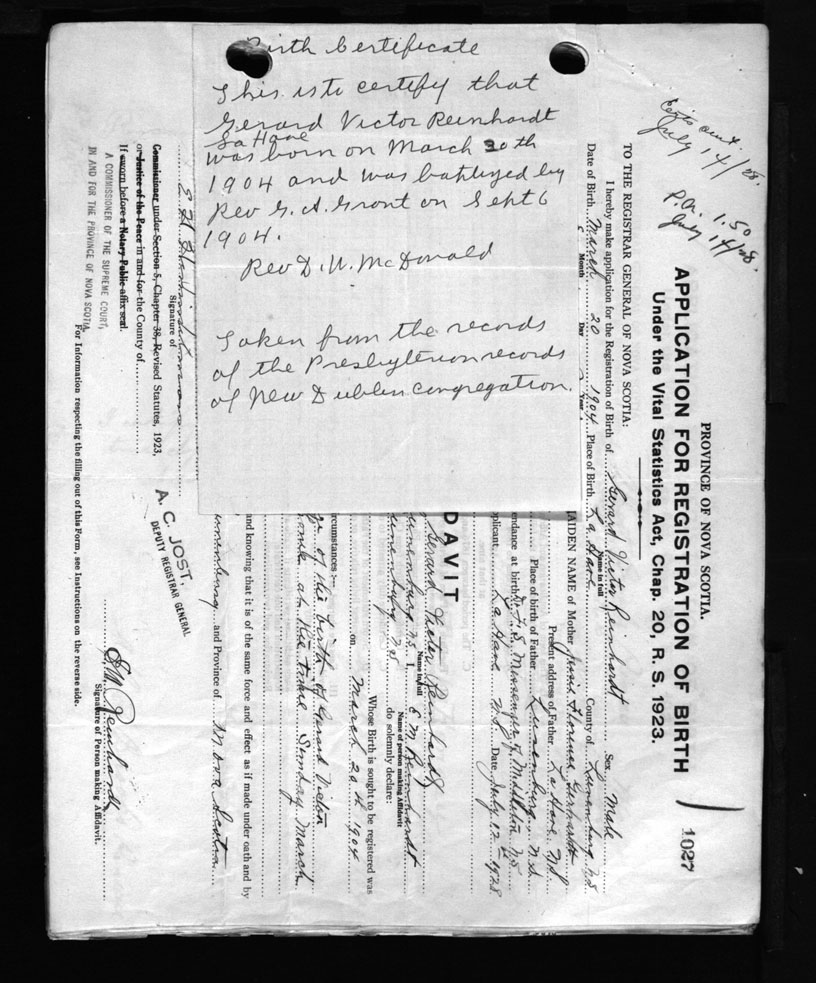 Birth Certificate
This is to certify that
Gerard Victor Reinhardt
La Have
was born on March 20th
1904 and was baptized by
Rev G. A. Grant on Sept 6
1904.
Rev D. W. McDonald
Taken from the records
of the Presbyterian records
of New Dublin congregation.
July 14/28.
P.O. 1.50
July 14/28.
PROVINCE OF NOVA SCOTIA.
APPLICATION FOR REGISTRATION OF BIRTH
Under the Vital Statistics Act, Chap. 20, R. S. 1923.
1027
TO THE REGISTRAR GENERAL OF NOVA SCOTIA:
I hereby make application for the Registration of Birth of Gerard Victor Reinhardt Sex Male
Name in full
Date of Birth March 20 1904 Place of Birth La Have County of Lunenburg N.S
Month Day Year
MAIDEN NAME of Mother Gerhardt
Present address of Father La Have N.S.
Place of birth of Father Lunenburg, N.S.
endance at birth Middleton N.S
pplicant La Have N.S. Date July 12th 1928
DAVIT
Gerard Victor Reinhardt
Name in full
unenburg N.S. I, E. M. Reinhardt
Name of person making Affidavit
unenburg N.S. do solemnly declare:
Whose Birth is sought to be registered was
on March 20th 1904
rcumstances:—
of the birth of Gerard Victor
at the time Sunday March
and knowing that it is of the same force and effect as if made under oath and by
unenburg and Province of Nova Scotia
E. M. Reinhardt
Signature of Person making Affidavit.
A. C. JOST,
DEPUTY REGISTRAR GENERAL
Signature of
Commissioner under Section 5, Chapter 38, Revised Statutes, 1923,
or Justice of the Peace in and for the County of
If sworn before a Notary Public affix seal.
A COMMISSIONER OF THE SUPREME COURT,
IN AND FOR THE PROVINCE OF NOVA SCOTIA
For Information respecting the filling out of this Form, see Instructions on the reverse side.